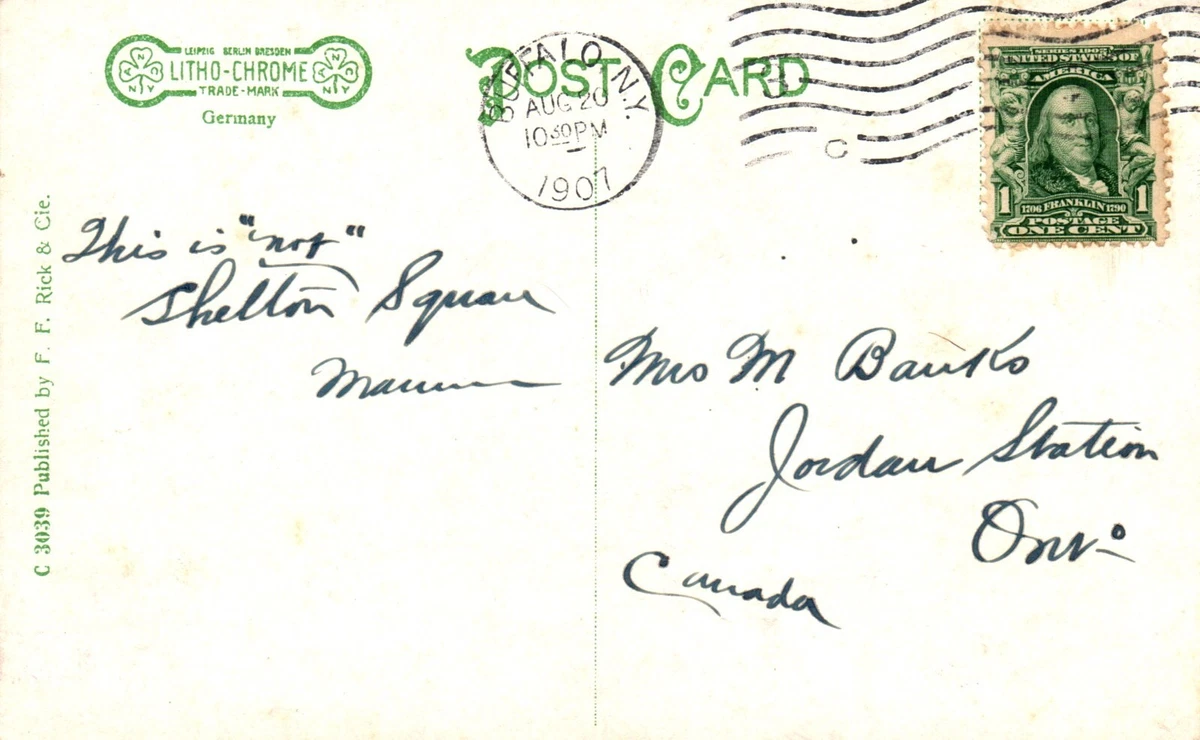 LEIPZIG BERLIN DRESDEN
LITHO-CHROME
TRADE-MARK
ANC NY
ANC NY
Germany
POST CARD
BUFFALO, N.Y.
AUG 20
10 30 PM
1907
C
SERIES 1902
UNITED STATES OF
AMERICA
1706 FRANKLIN 1790
1 1
POSTAGE
ONE CENT
C 3039 Published by F. F. Rick & Cie.
This is "not"
Shelton Square
Mrs M Banks
Jordan Station
Ont o
Canada